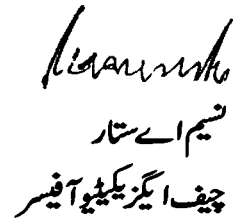 نسیم اے ستار
چیف ایگزیکیٹیو آفیسر